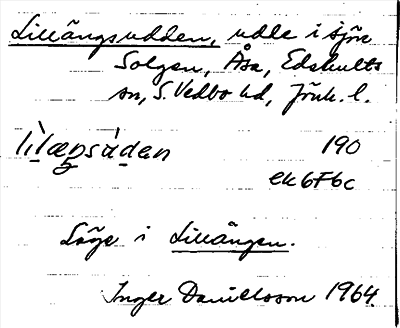 Lillängsudden, udde i sjön
Solgen, Åsa, Edshults
sn, S. Vedbo hd, Jönk. l.
190
ek 6F6c
Läge i Lillängen.
Inger Danielsson 1964.